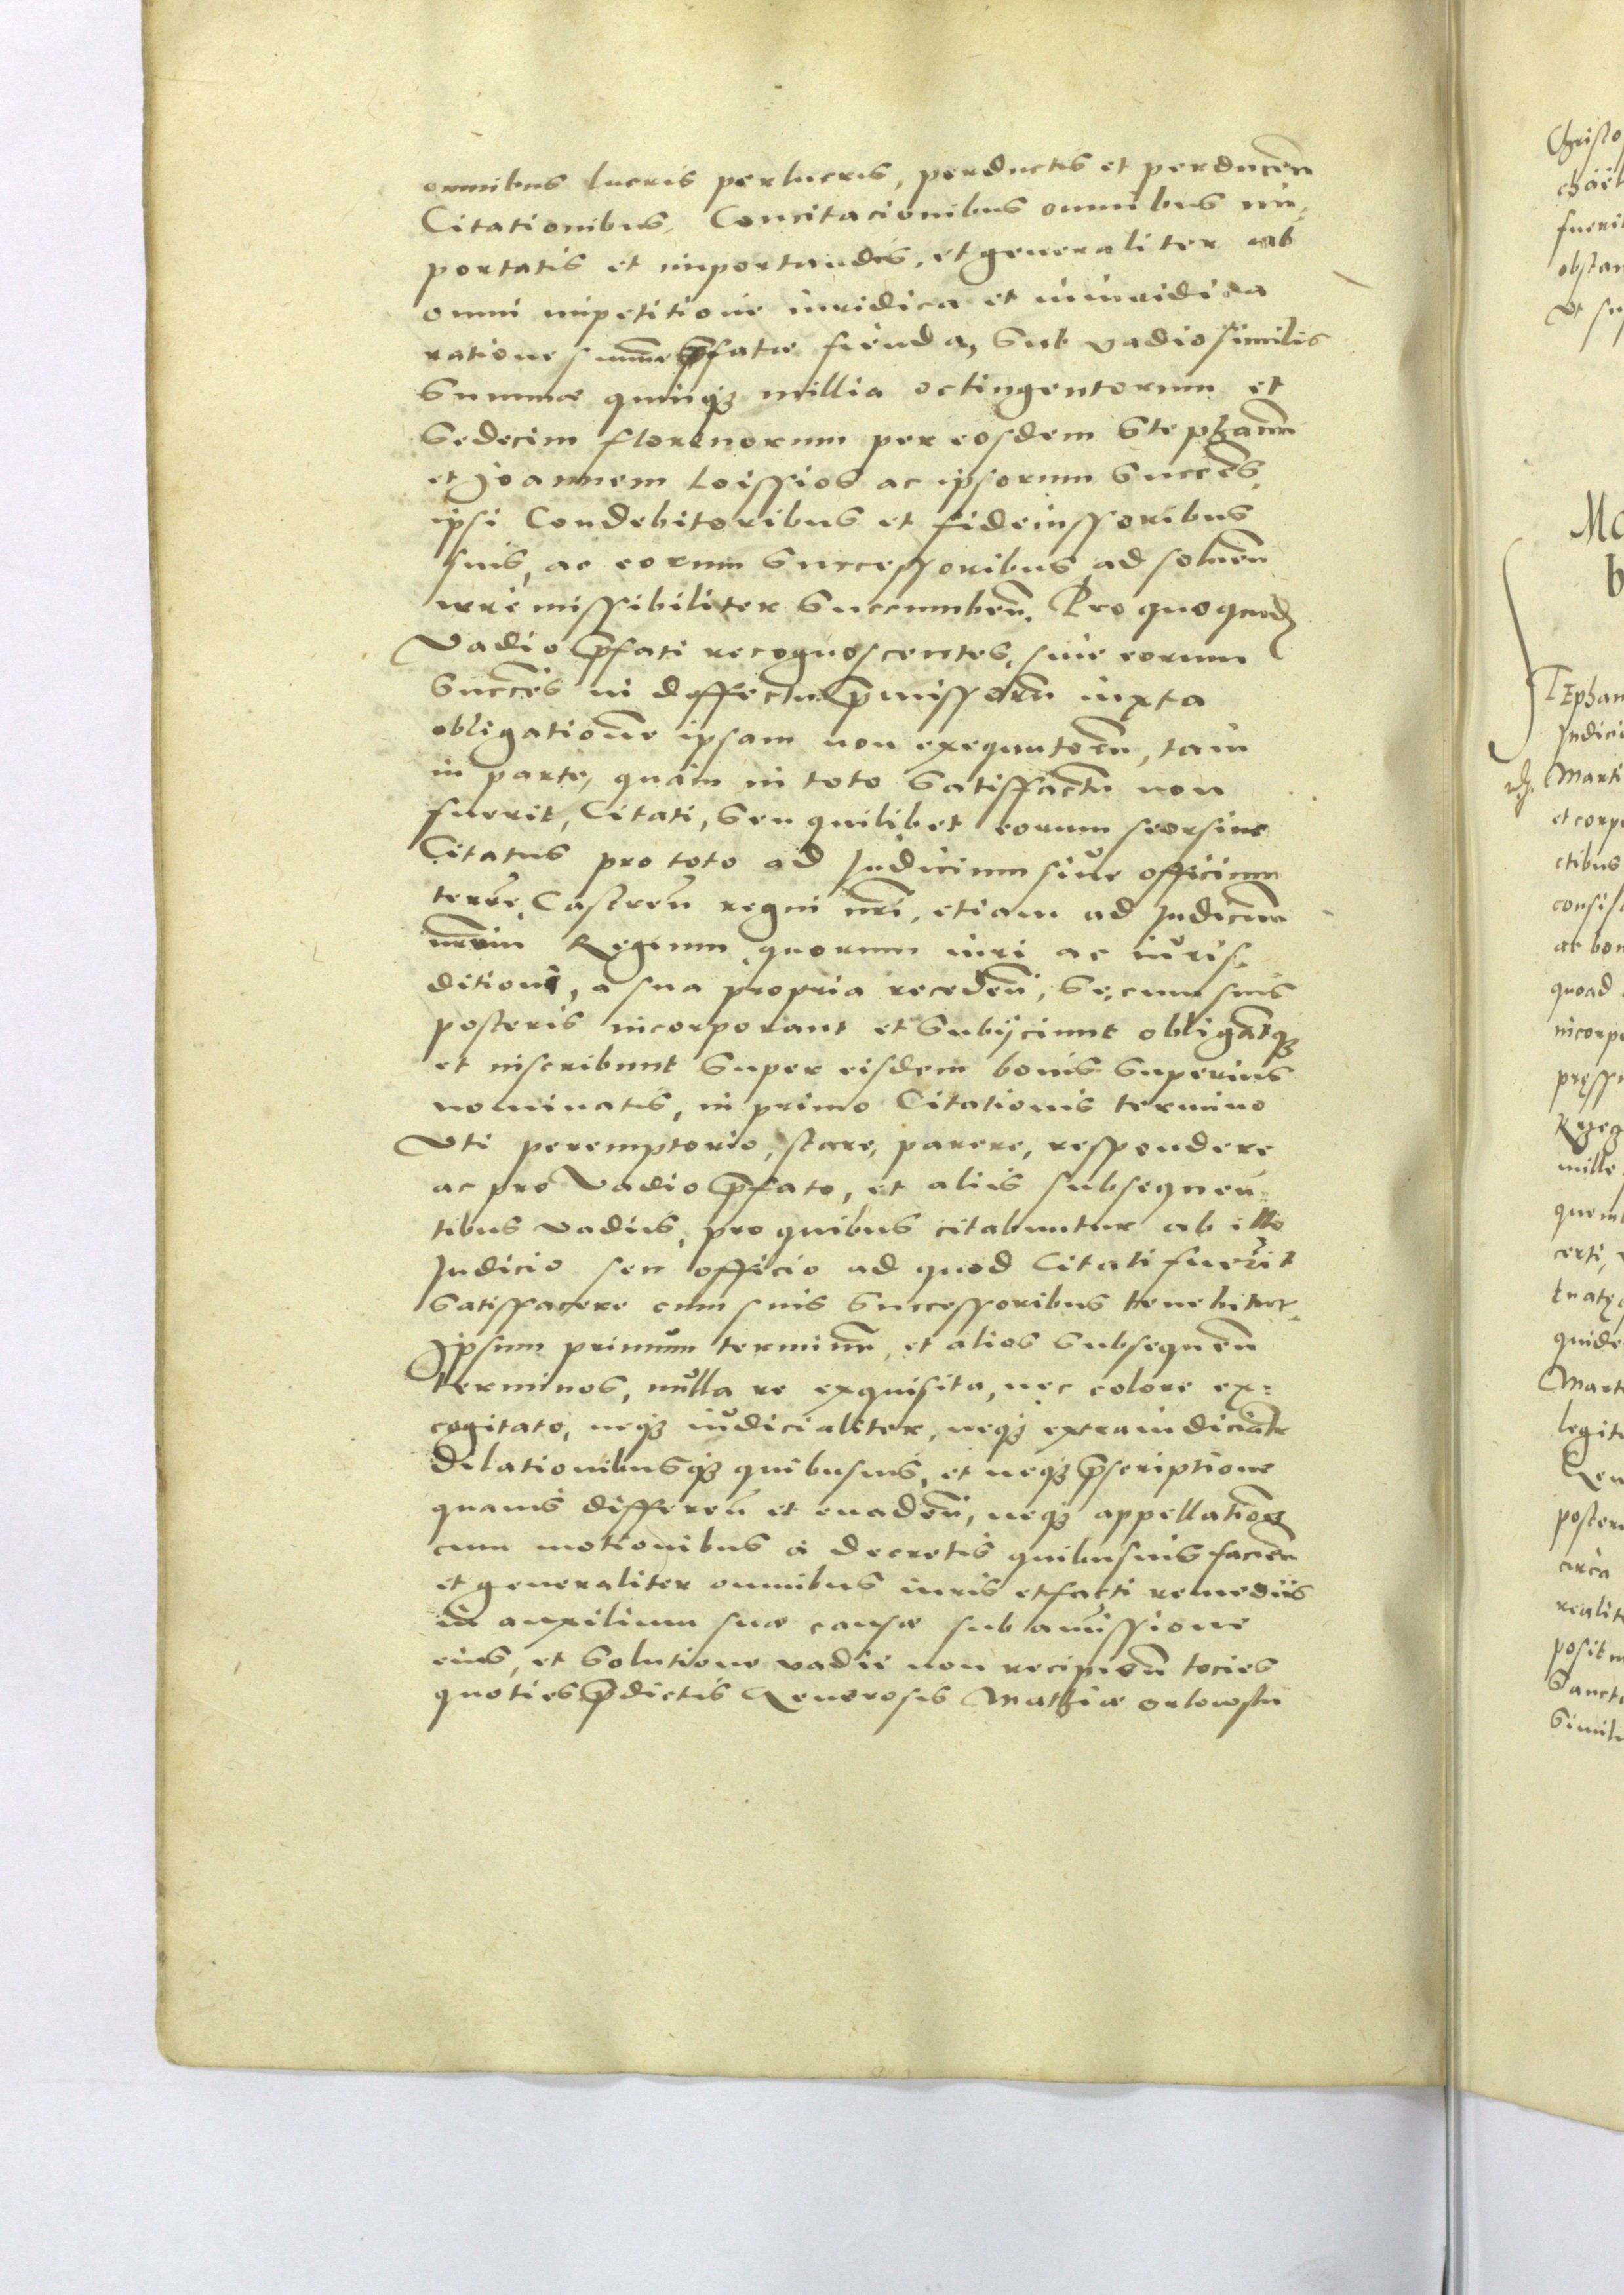 omnibus lucris perlucris, perductis et perducen̄
Citationibus, Concitacionibus omnibus im-
portatis et importandis, et generaliter ab
omni impetitione iuridica et iniuridica
ratione summe p̄fatæ fienda, Sub vadio similis
Summæ quinqꝫ millia octingentorum et
Sedecim florenorum per eosdem Stephanū
et Joannem Loissios ac ipsorum Succes̄,
ipsi Condebitoribus et fideiussoribus
suis, ac eorum Successoribus, ad soluen̄
irremissibiliter Succumben̄. Pro quo quidē
Vadio p̄fati recognoscentes, siue eorum
Succēs in deffectu p̄missorū iuxta
obligatione ipsam non exequutorū, tam
in parte, quàm in toto Satisffactū non
fuerit, Citati, Seu quilibet eorum seorsiue
Citatus pro toto ad Judicium siue officium
terrē, Castren̄ regni nrī, etiam ad Judicium
nrm̄ Regium, quorum iuri ac iuris-
ditioni, a sua propria receden̄, Se, cum suis
posteris incorporant et Subijciunt obligantqꝫ
et inscribunt Super eisdem bonis Superius
nominatis, in primo Citationis termino
Vti peremptorio, stare, parere, respondere
ac pro Vadio p̄fato, et aliis subsequen-
tibus vadiis, pro quibus citabuntur ab illo
Judicio seu officio ad quod Citati fuerīt
Satisffacere cum suis Successoribus tenebitur
Ipsum primum terminū, et alios Subsequen̄
terminos, nulla re exquisita, nec colore ex-
cogitato, neqꝫ iudicialiter, neqꝫ extraiudiciālr
Dilationibusqꝫ quibusuis, et neqꝫ p̄scriptione
quauis differen̄ et euaden̄, neqꝫ appellationē
cum motionibus à decretis quibusuis facien̄
et generaliter omnibus iuris et facti remediis
in auxilium suæ causæ sub amissione
eius, et Solutione vadii non recipien̄ tocies
quoties p̄dictis Generosis Mathiæ orlowski
Christo
chaël
fueri
obstan
Vt su
Mo
TEphan
Judici
Marti
et corpo
ctibus
consis
ac bon
quoad
incorpo
pręss
mille
certi,
quide
Mart
legit
Gen
poster
circa
realit
posit
Sanct
Simil